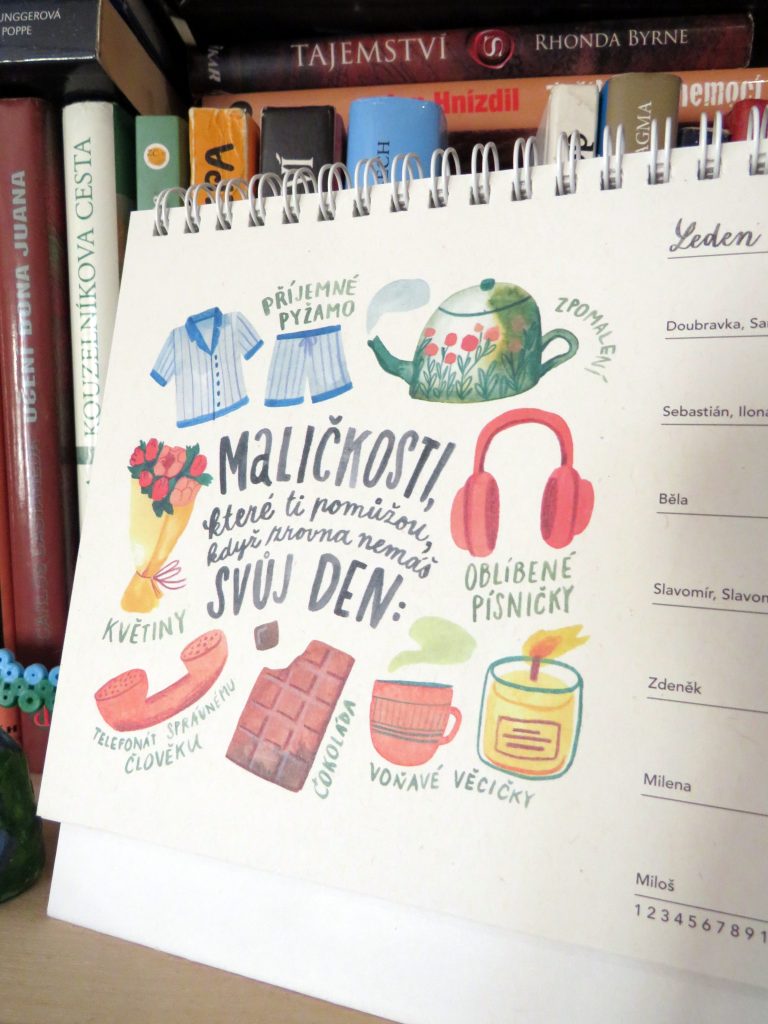 UNGGEROVÁ
POPPE
TAJEMSTVÍ
RHONDA BYRNE
Hnízdil
nemocí
UČENÍ DONA JUANA
KOUZELNÍKOVA CESTA
Leden
PŘÍJEMNÉ
PYŽAMO
ZPOMALENÍ
MALIČKOSTI,
které ti pomůžou,
když zrovna nemáš
SVŮJ DEN:
OBLÍBENÉ
PÍSNIČKY
KVĚTINY
TELEFONÁT SPRÁVNÉMU
ČLOVĚKU
ČOKOLÁDA
VOŇAVÉ VĚCIČKY
Doubravka,
Sebastián, Ilona
Běla
Slavomír,
Zdeněk
Milena
Miloš
1 2 3 4 5 6 7 8 9 1